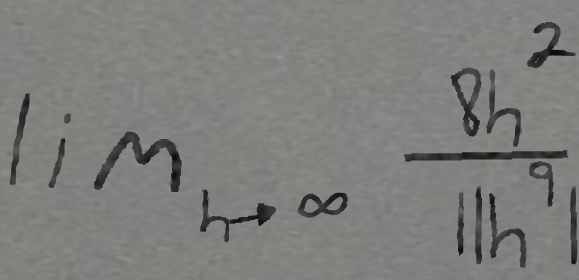 lim_{h→∞} \frac{8h^2}{||h^9|}